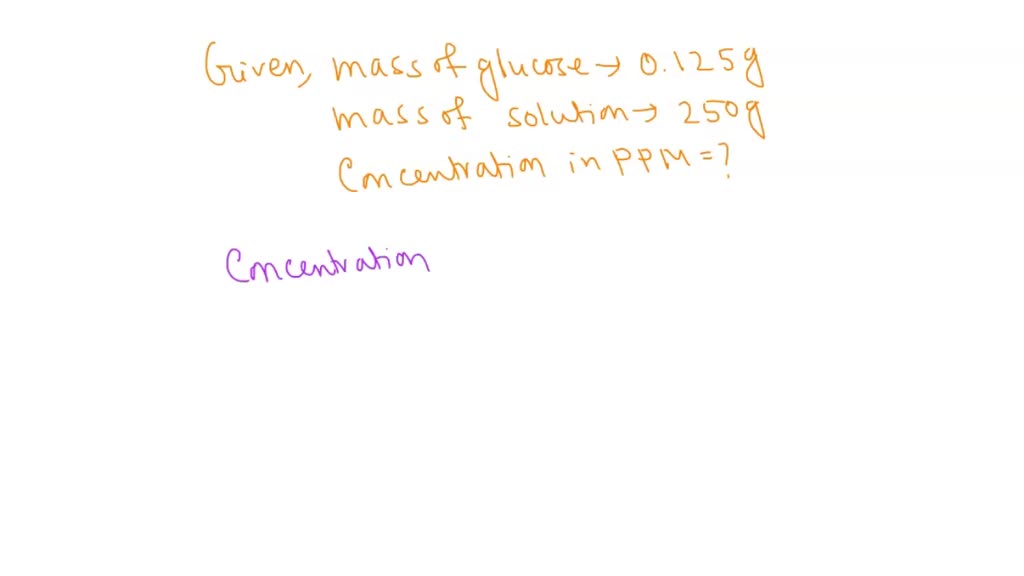 Given, mass of glucose → 0.125g
mass of solution → 250g
Concentration in PPM = ?
Concentration